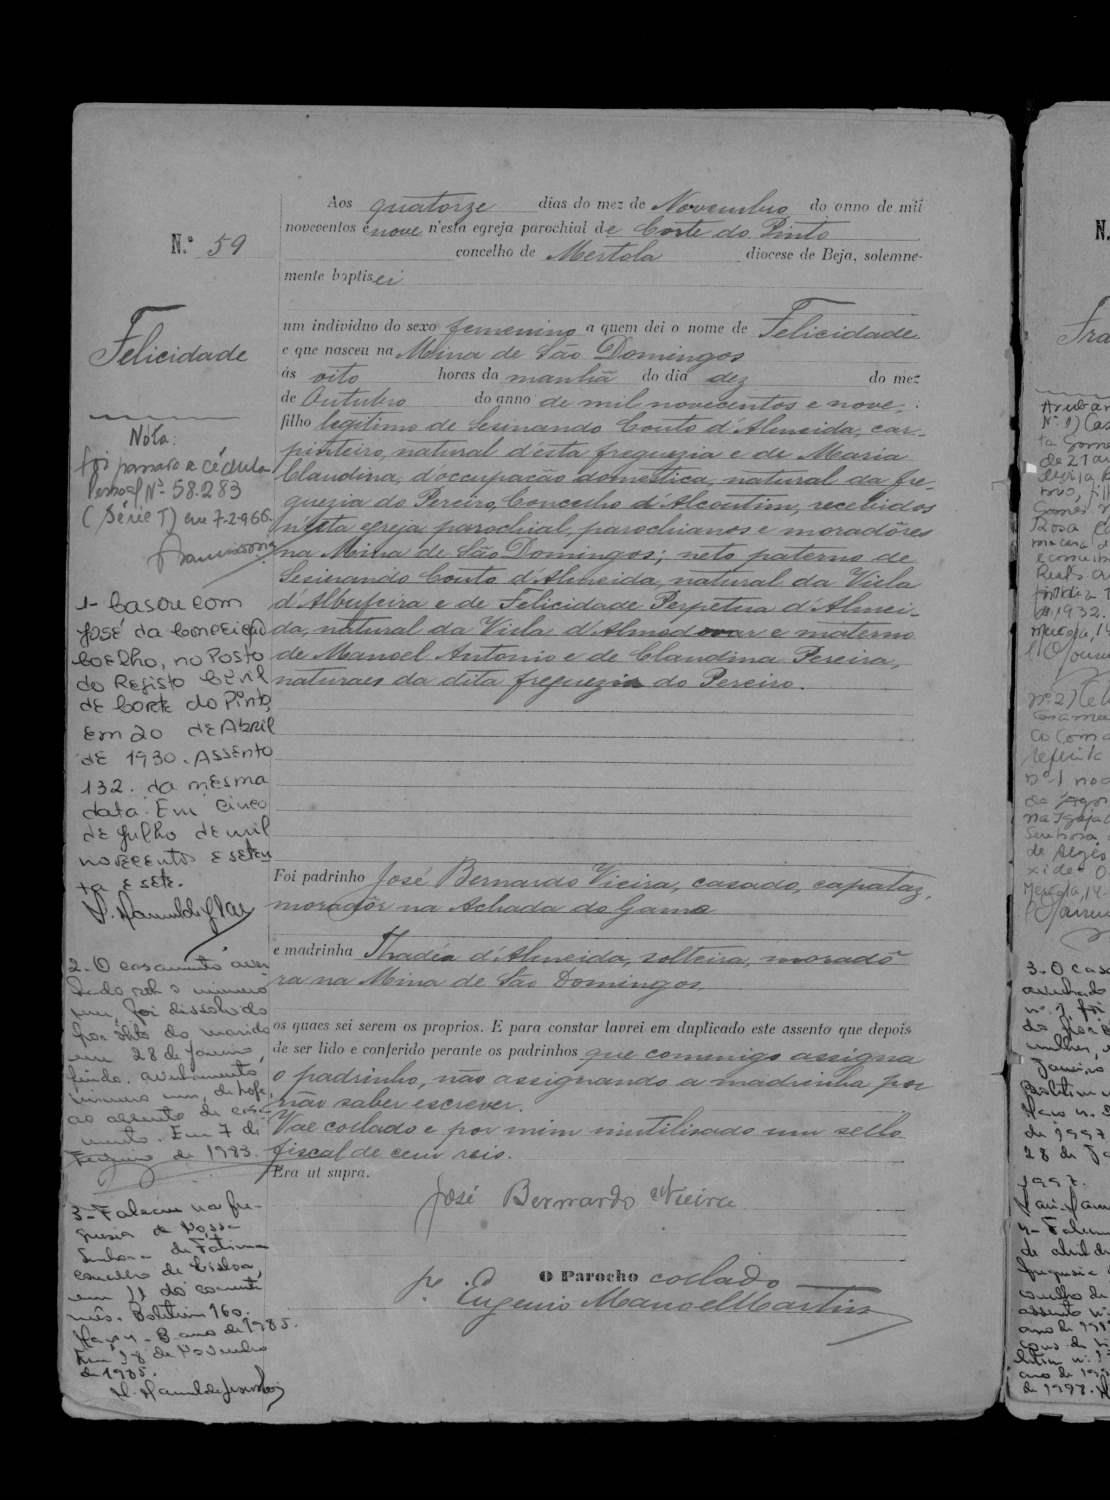 N.º 59
Felicidade
Nóta:
foi passada a cédula
Pessoal Nº 58.283
(Série T) em 7-2-966.
1- Casou com
José da Conceição
Coelho, no Posto
do Registo Civil
de Corte do Pinto,
em 20 de Abril
de 1930. Assento
132. da mesma
data. Em cinco
de julho de mil
novecentos e seten
ta e sete.
2. O casamento aver
bado sob o número
um, foi dissolvido
por óbito do marido
em 28 de Janeiro,
findo. averbamento
número um, de hoje,
ao assento de casa
mento. Em 7 de
Fevereiro de 1983.
3- Faleceu na fre-
guesia de Nossa
Senhora de Fátima
concelho de Lisboa,
em 11 do corrente
mês. Boletim 160.
Maço n. 3 ano de 1985.
Em 18 de Novembro
de 1985.
Aos quatorze dias do mez de Novembro do anno de mil
novecentos e nove n'esta egreja parochial de Corte do Pinto
concelho de Mertola diocese de Beja, solemne-
mente baptisei
um individuo do sexo femenino a quem dei o nome de Felicidade
e que nasceu na Mina de São Domingos
ás oito horas da manhã do dia dez do mez
de Outubro do anno de mil novecentos e nove,
filho legitimo de Sesinando Couto d'Almeida, car-
pinteiro, natural d'esta freguezia e de Maria
Claudina, d'occupação domestica, natural da fre-
guezia do Pereiro, Concelho d'Alcoutim, recebidos
n'esta egreja parochial, parochianos e moradôres
na Mina de São Domingos; neto paterno de
Sesinando Couto d'Almeida, natural da Villa
d'Albufeira e de Felicidade Perpetua d'Almei-
da, natural da Villa d'Almodovar e materno
de Manoel Antonio e de Claudina Pereira,
naturaes da dita freguezia do Pereiro.
Foi padrinho José Bernardo Vieira, casado, capataz,
moradôr na Achada do Gamo
e madrinha Thadéa d'Almeida, solteira, moradô
ra na Mina de São Domingos,
os quaes sei serem os proprios. E para constar lavrei em duplicado este assento que depois
de ser lido e conferido perante os padrinhos que commigo assigna
o padrinho, não assignando a madrinha por
não saber escrever.
Vae collado e por mim inutilisado um sello
fiscal de cem reis.
Era ut supra.
José Bernardo Vieira
O Parocho collado
Pe. Eugenio Manoel Martins